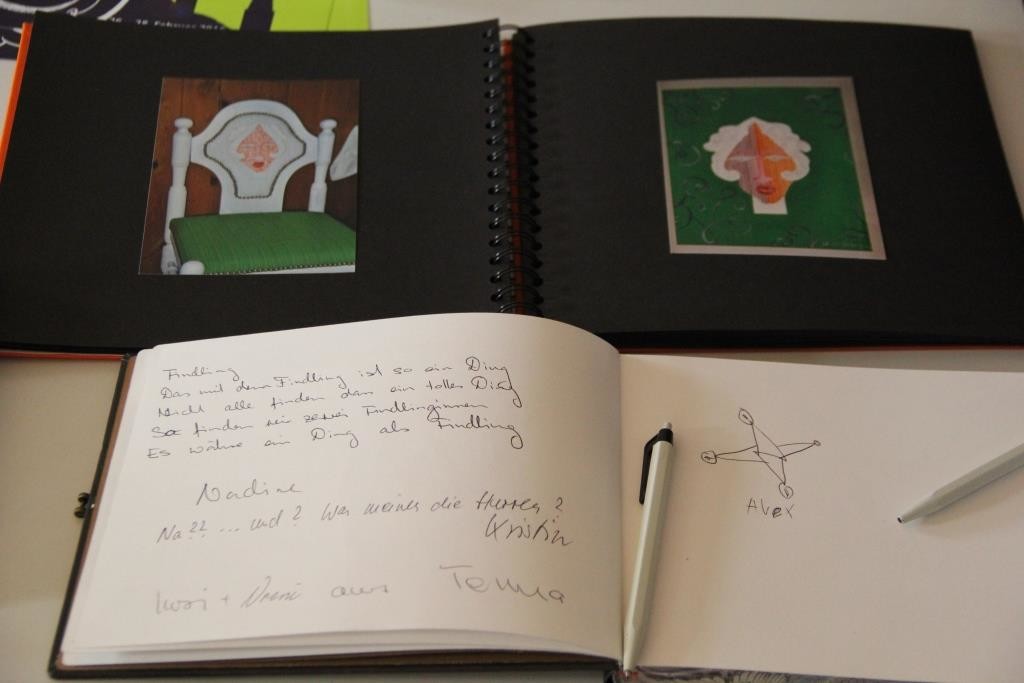 26. - 28. Februar 201
Findling
Das mit dem Findling ist so ein Ding
Nicht alle finden dran ein tolles Ding
So finden wir zwei Findlinginnen
Es währe ein Ding als Findling
Nadine
Na?? ... und? Was meinen die Herren?
Kristin
+ aus Tenna
Alex